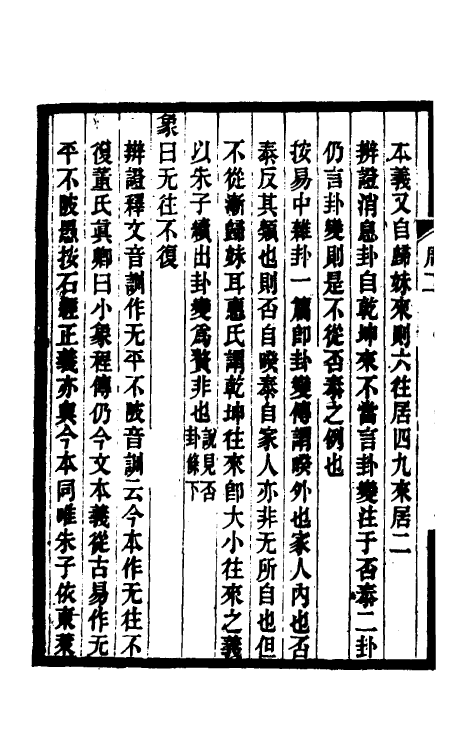 本義又自歸妹來則六往居四九來居二
辨證消息卦自乾坤來不當言卦變注于否泰二卦
仍言卦變則是不從否泰之例也
按易中雜卦一篇卽卦變傳謂睽外也家人內也否
泰反其類也則否自睽泰自家人亦非无所自也但
不從漸歸妹耳惠氏謂乾坤往來卽大小往來之義
以朱子續出卦變爲贅非也說見否卦條下
象曰无往不復
辨證釋文音訓作无平不陂音訓云今本作无往不
復董氏真卿曰小象程傳仍今文本義從古易作无
平不陂愚按石經正義亦與今本同唯朱子依東萊